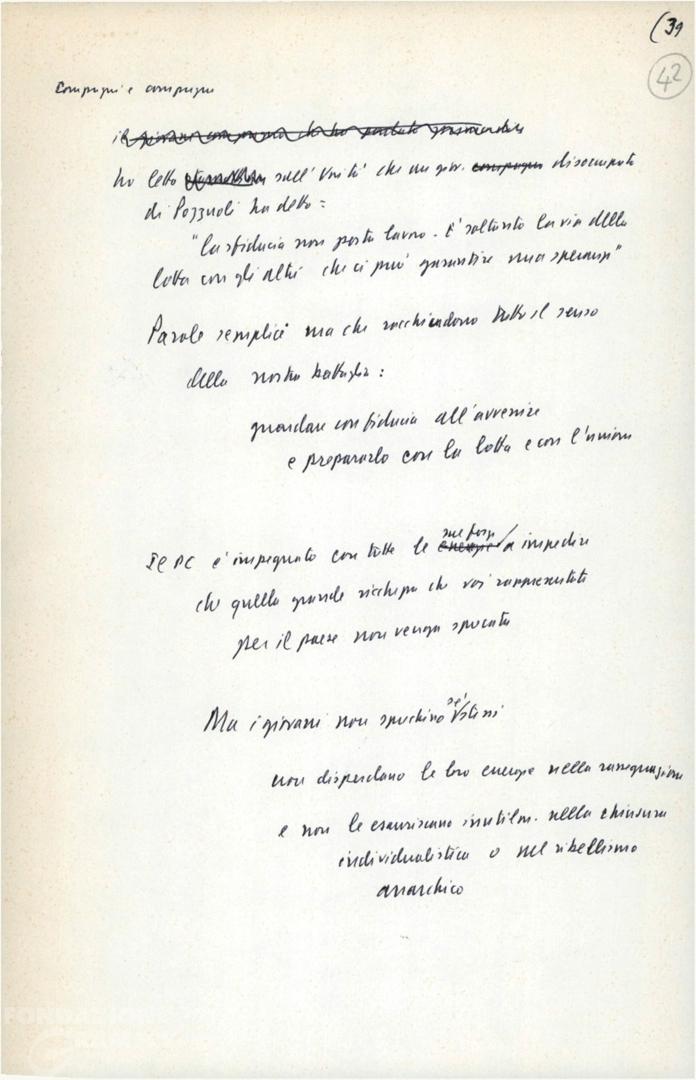 (39
42
Compagni e compagne
il giovane compagno che ha parlato
ho letto sull'Unità che un giov. compagno disoccupato
di Pozzuoli ha detto:
"la sfiducia non porta lavoro. È soltanto la via della
lotta con gli altri che ci può garantire una speranza"
Parole semplici ma che racchiudono tutto il senso
della nostra battaglia:
guardare con fiducia all'avvenire
e prepararlo con la lotta e con l'unione
sue forze
Il PC è impegnato con tutte le energie a impedire
che quella grande ricchezza che voi rappresentate
per il paese non venga sprecata
sé
Ma i giovani non sprechino stessi
non disperdano le loro energie nella rassegnazione
e non le esauriscano inutilm. nella chiusura
individualistica o nel ribellismo
anarchico
FONDAZIONE
GRAMSCI